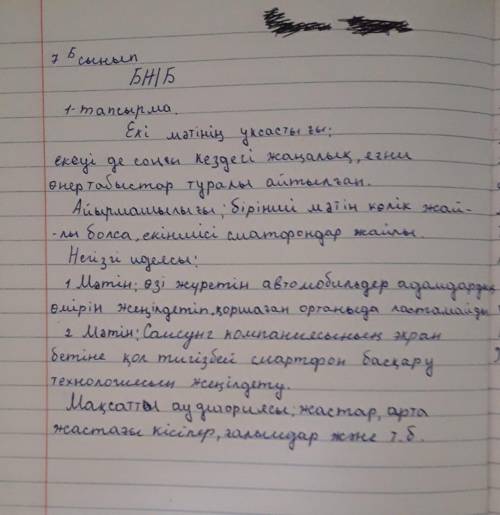 7 Б сынып
БЖБ
1-тапсырма.
Екі мәтінің ұқсастығы;
екеуі де соңғы кездегі жаңалық, яғни
өнертабыстар туралы айтылған.
Айырмашылығы; бірінші мәтін көлік жай-
-лы болса, екіншісі сматфондар жайлы.
Негізгі идеясы:
1 Мәтін; өзі жүретін автомобильдер адамдардың
өмірін жеңілдетіп, қоршаған ортаныда ластамайды
2 Мәтін; Самсунг компаниясының экран
бетіне қол тигізбей смартфон басқару
технологиясын жеңілдету.
Мақсатты аудиториясы; жастар, орта
жастағы кісілер, ғалымдар және т.б.